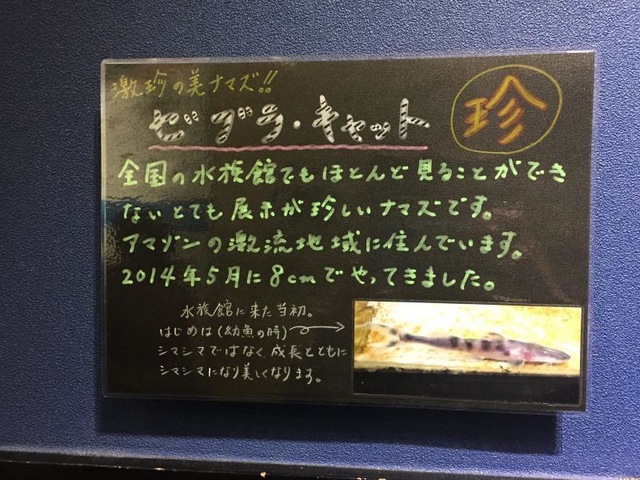 激珍の美ナマズ!!
珍
ゼブラ・キャット
全国の水族館でもほとんど見ることができ
ないとても展示が珍しいナマズです。
アマゾンの激流地域に住んでいます。
2014年5月に8cmでやってきました。
水族館に来た当初。
はじめは(幼魚の時)
シマシマではなく成長とともに
シマシマになり美しくなります。